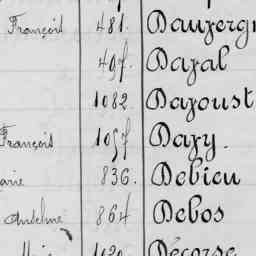 François 481. Dauzerg
497. Dazal
1082 Dazoust
François 1057 Dazy.
arie 836. Debieu
Anthelme 864 Debos
1020 Décorse